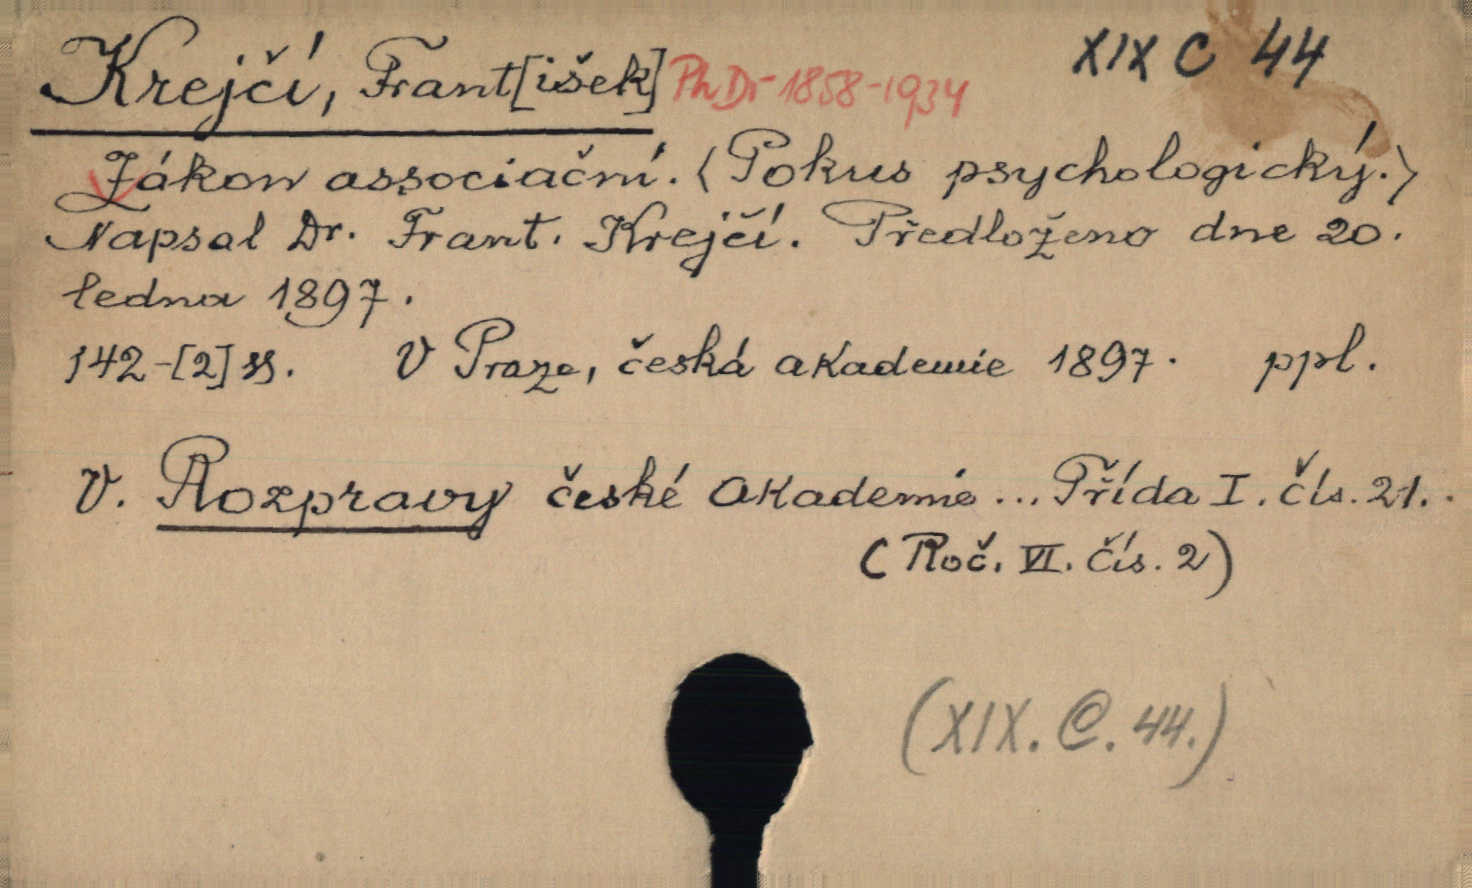 Krejčí, Frant[išek] PhDr 1858-1934 XIX C 44
Zákon associační. (Pokus psychologický.)
Napsal Dr. Frant. Krejčí. Předloženo dne 20.
ledna 1897.
142-[2] ss. V Praze, česká akademie 1897. ppl.
V. Rozpravy české akademie ... Třída I. Čís. 21.
(Roč. VI. čís. 2)
(XIX. C. 44.)